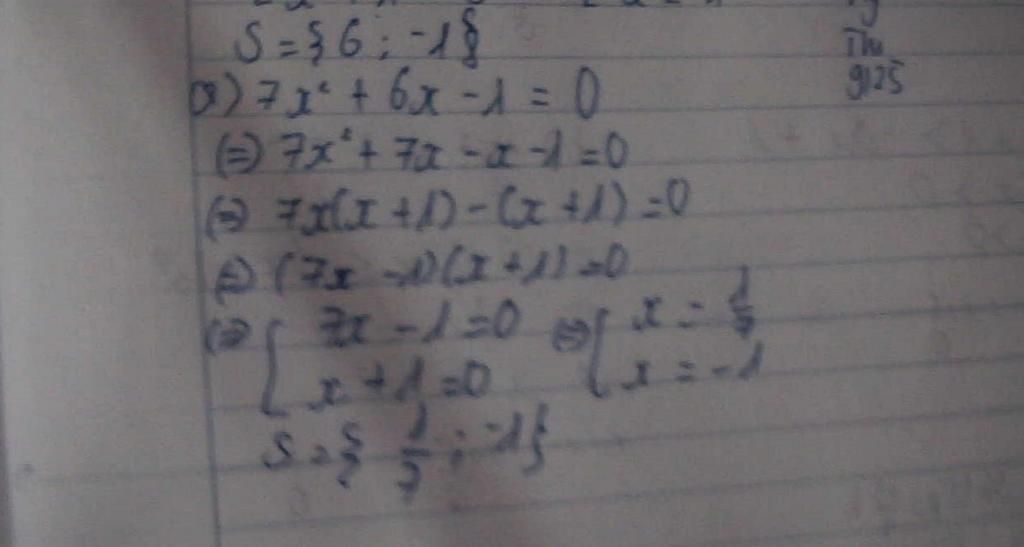 S = { 6 ; -1 }
7x² + 6x - 1 = 0
(=) 7x² + 7x - x - 1 = 0
(=) 7x(x + 1) - (x + 1) = 0
(=) (7x - 1)(x + 1) = 0
(=) { 7x - 1 = 0 (=) { x = 1/7
x + 1 = 0 x = -1
S = { 1/7 ; -1 }
Thu
9125